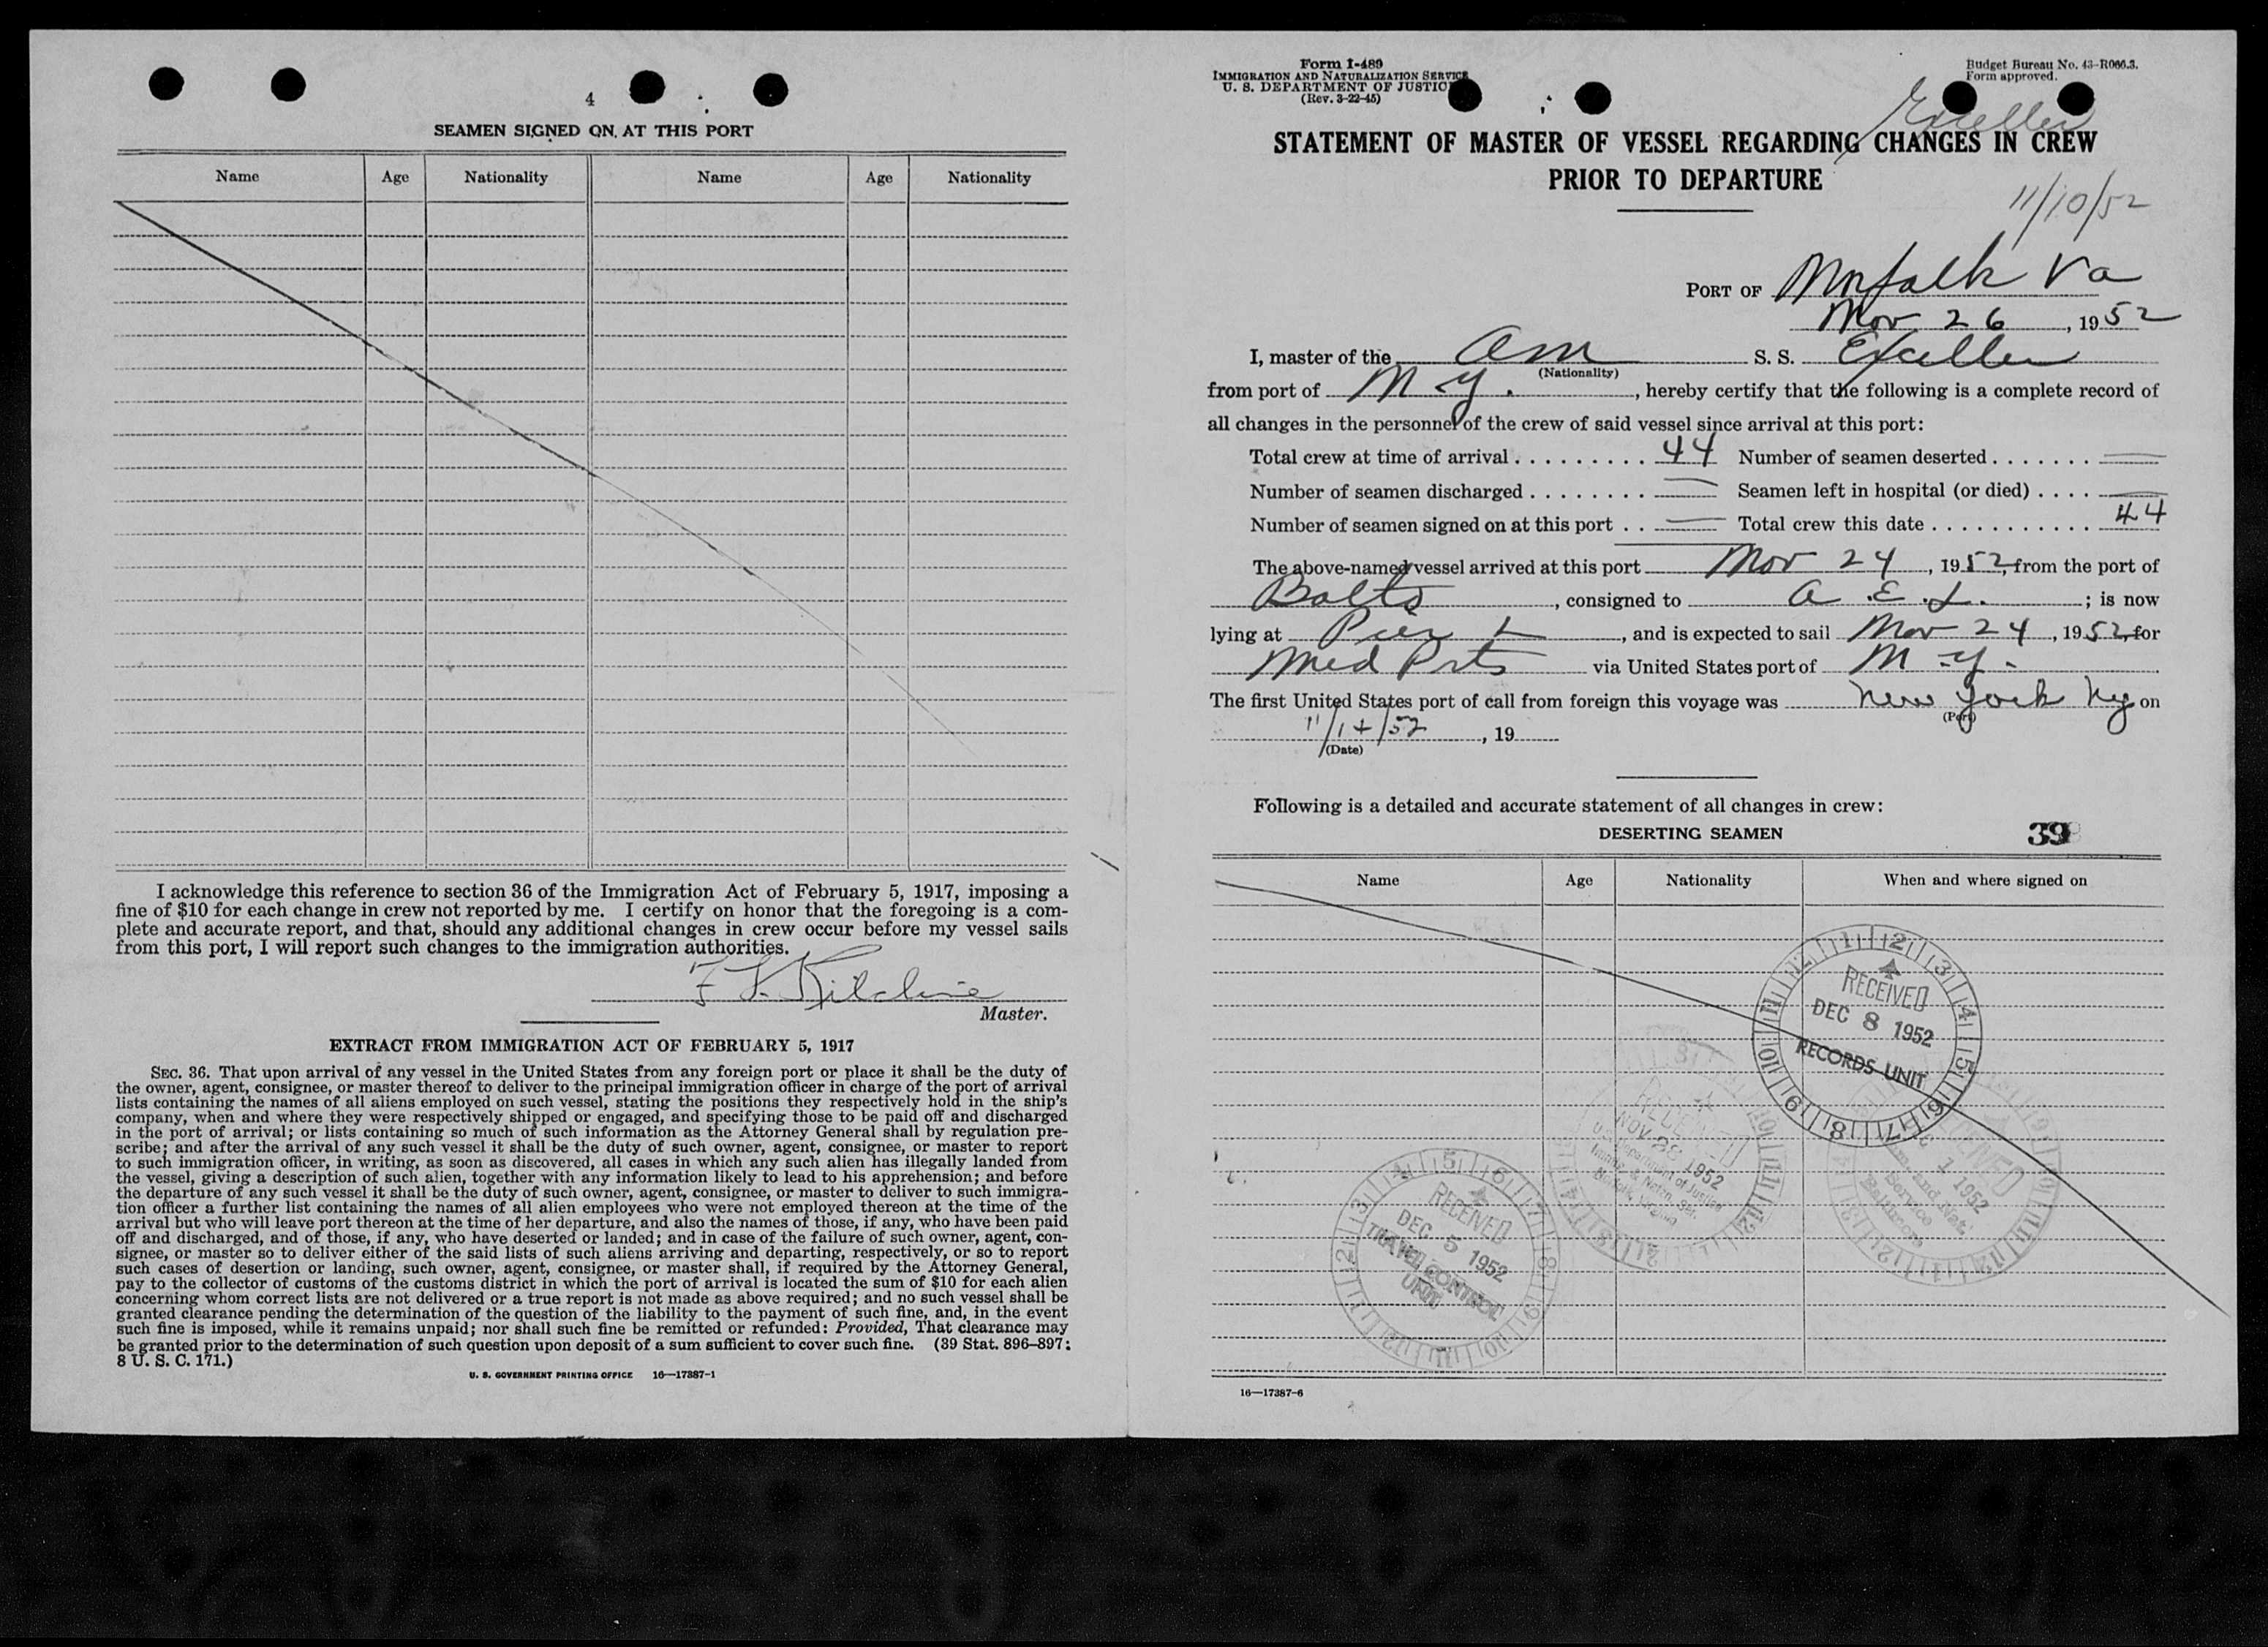 4
SEAMEN SIGNED ON AT THIS PORT
Name Age Nationality Name Age Nationality
I acknowledge this reference to section 36 of the Immigration Act of February 5, 1917, imposing a
fine of $10 for each change in crew not reported by me. I certify on honor that the foregoing is a com-
plete and accurate report, and that, should any additional changes in crew occur before my vessel sails
from this port, I will report such changes to the immigration authorities.
Master.
EXTRACT FROM IMMIGRATION ACT OF FEBRUARY 5, 1917
SEC. 36. That upon arrival of any vessel in the United States from any foreign port or place it shall be the duty of
the owner, agent, consignee, or master thereof to deliver to the principal immigration officer in charge of the port of arrival
lists containing the names of all aliens employed on such vessel, stating the positions they respectively hold in the ship's
company, when and where they were respectively shipped or engaged, and specifying those to be paid off and discharged
in the port of arrival; or lists containing so much of such information as the Attorney General shall by regulation pre-
scribe; and after the arrival of any such vessel it shall be the duty of such owner, agent, consignee, or master to report
to such immigration officer, in writing, as soon as discovered, all cases in which any such alien has illegally landed from
the vessel, giving a description of such alien, together with any information likely to lead to his apprehension; and before
the departure of any such vessel it shall be the duty of such owner, agent, consignee, or master to deliver to such immigra-
tion officer a further list containing the names of all alien employees who were not employed thereon at the time of the
arrival but who will leave port thereon at the time of her departure, and also the names of those, if any, who have been paid
off and discharged, and of those, if any, who have deserted or landed; and in case of the failure of such owner, agent, con-
signee, or master so to deliver either of the said lists of such aliens arriving and departing, respectively, or so to report
such cases of desertion or landing, such owner, agent, consignee, or master shall, if required by the Attorney General,
pay to the collector of customs of the customs district in which the port of arrival is located the sum of $10 for each alien
concerning whom correct lists are not delivered or a true report is not made as above required; and no such vessel shall be
granted clearance pending the determination of the question of the liability to the payment of such fine, and, in the event
such fine is imposed, while it remains unpaid; nor shall such fine be remitted or refunded: Provided, That clearance may
be granted prior to the determination of such question upon deposit of a sum sufficient to cover such fine. (39 Stat. 896–897;
8 U. S. C. 171.)
U. S. GOVERNMENT PRINTING OFFICE 16—17387-1
Form I-489
IMMIGRATION AND NATURALIZATION SERVICE
U. S. DEPARTMENT OF JUSTICE
(Rev. 3-22-45)
Budget Bureau No. 43-R066.3.
Form approved.
Exceller
STATEMENT OF MASTER OF VESSEL REGARDING CHANGES IN CREW
PRIOR TO DEPARTURE
11/10/52
PORT OF Norfolk Va
Nov 26, 1952
I, master of the Am S. S. Exceller
(Nationality)
from port of N.Y., hereby certify that the following is a complete record of
all changes in the personnel of the crew of said vessel since arrival at this port:
Total crew at time of arrival 44 Number of seamen deserted —
Number of seamen discharged — Seamen left in hospital (or died) —
Number of seamen signed on at this port — Total crew this date 44
The above-named vessel arrived at this port Nov 24, 1952, from the port of
Balto, consigned to A.E.L.; is now
lying at Pier L, and is expected to sail Nov 24, 1952, for
Med Prts via United States port of N.Y.
The first United States port of call from foreign this voyage was New York NY on
(Port)
11/14/52, 19
(Date)
Following is a detailed and accurate statement of all changes in crew:
DESERTING SEAMEN
39
Name Age Nationality When and where signed on
RECEIVED
DEC 8 1952
RECORDS UNIT
RECEIVED
1952
U.S. Department of Justice
Norfolk, Virginia
RECEIVED
DEC 1 1952
Imm. and Nat.
Service
Baltimore
RECEIVED
DEC 5 1952
TRAVEL CONTROL
UNIT
16—17387-6